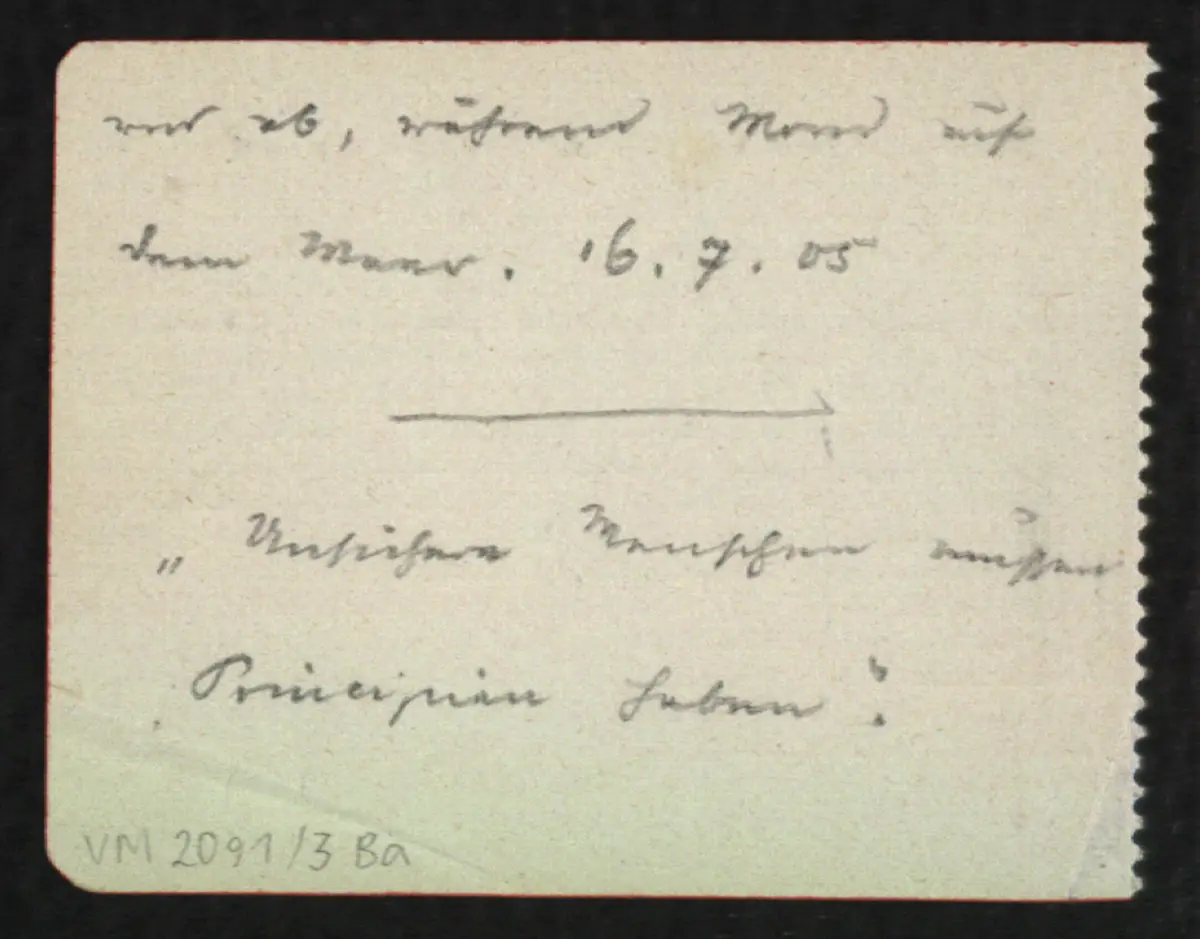 und ab, während Mond auf
dem Meer. 16. 7. 05
„ Unsichere Menschen müssen
Principien haben".
VM 2091/3 Ba